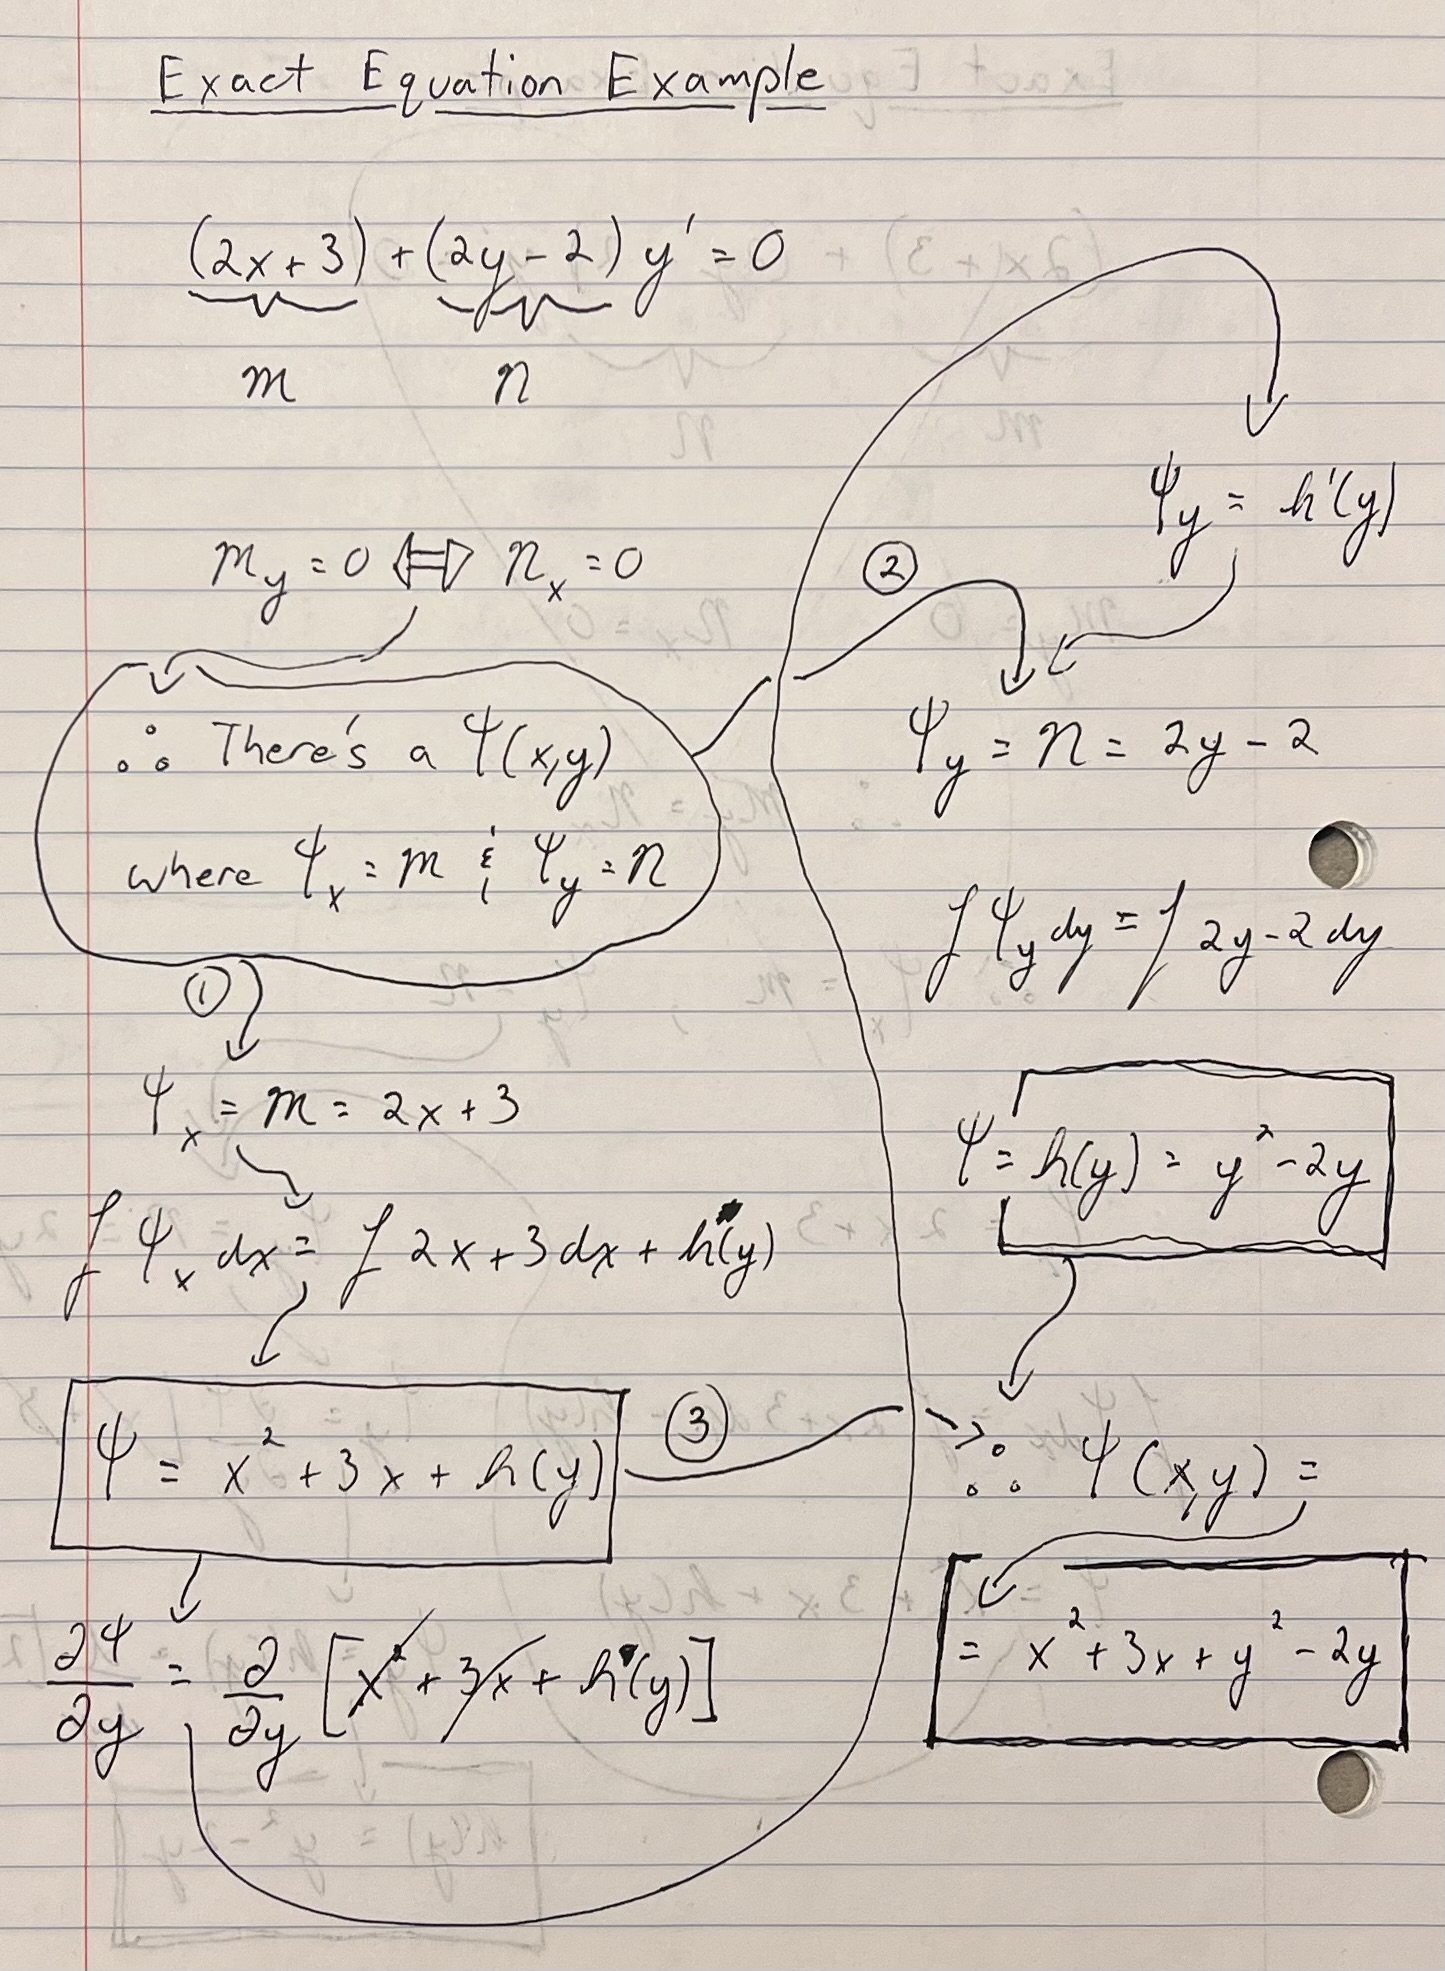 Exact Equation Example
(2x+3) + (2y-2) y' = 0
m n
m_y = 0 ⇔ n_x = 0
∴ There's a Ψ(x,y)
where Ψ_x = m & Ψ_y = n
①
Ψ_x = m = 2x+3
∫ Ψ_x dx = ∫ 2x+3 dx + h(y)
Ψ = x² + 3x + h(y)
∂Ψ/∂y = ∂/∂y [x² + 3x + h(y)]
Ψ_y = h'(y)
②
Ψ_y = n = 2y - 2
∫ Ψ_y dy = ∫ 2y - 2 dy
Ψ = h(y) = y² - 2y
③
∴ Ψ(x,y) =
= x² + 3x + y² - 2y